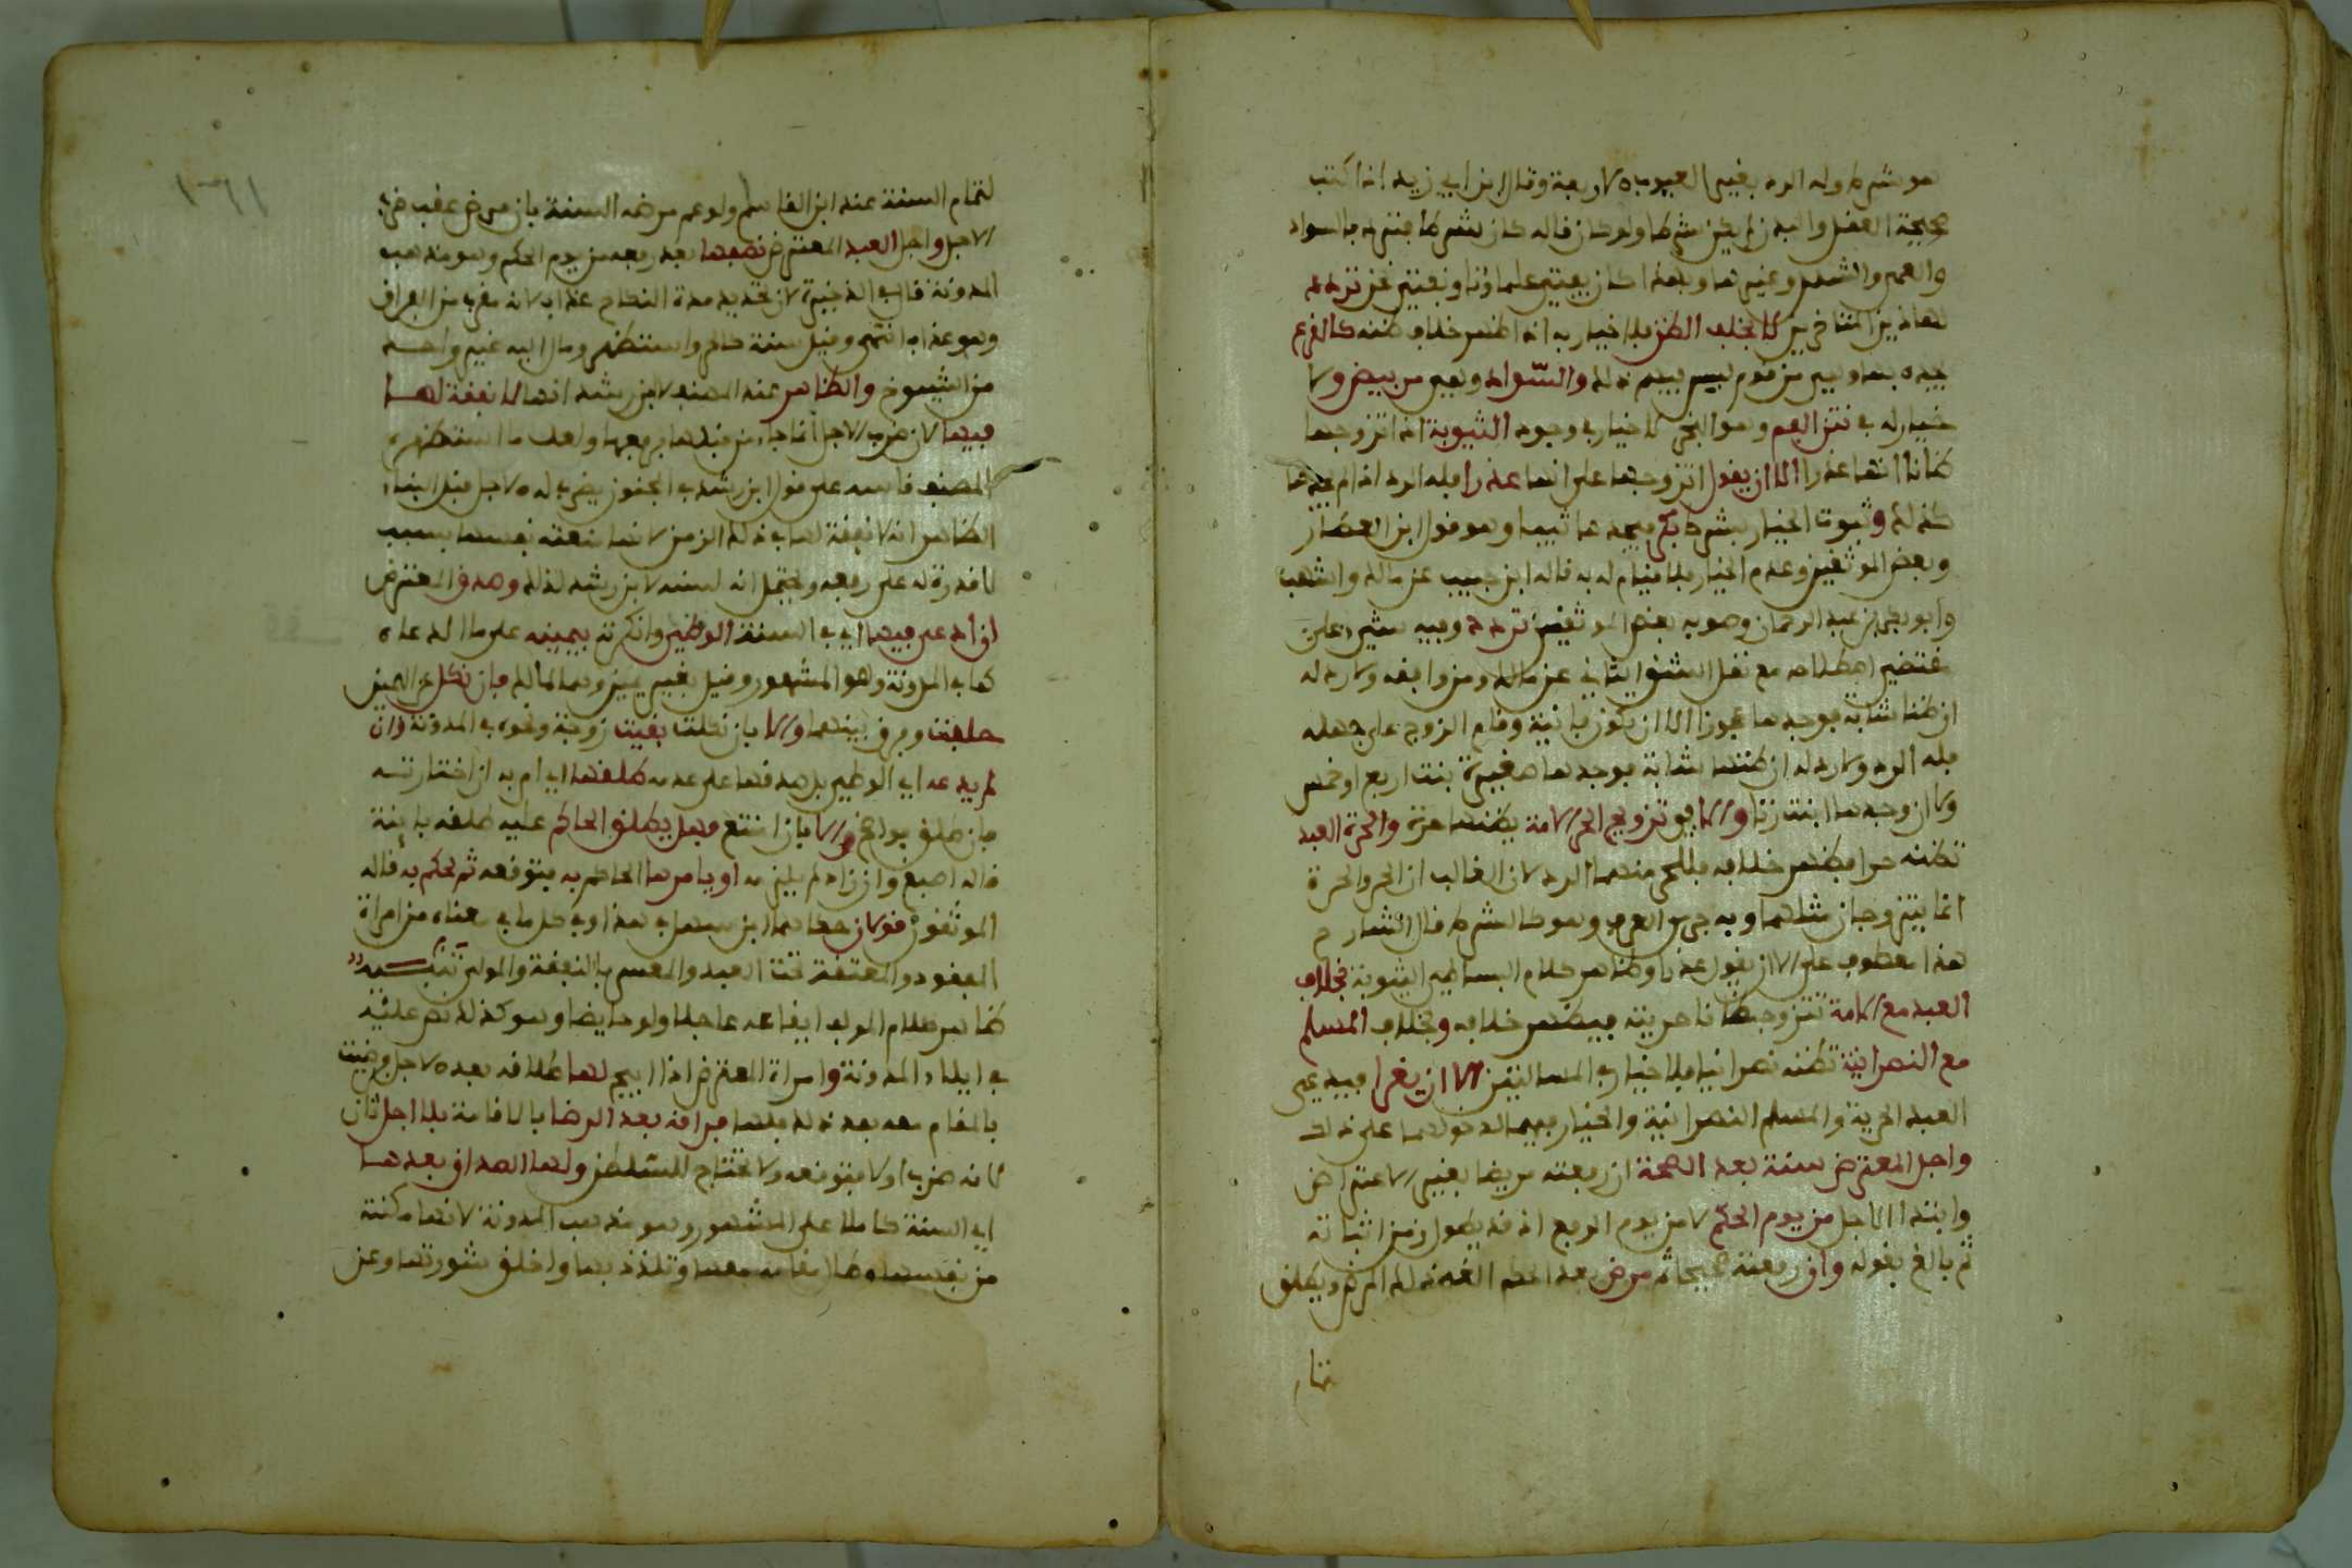 هو شرط وله الرد بغير العيوب الاربعة وقال ابن ابي زيد اذا كتب
صحيحة العقل والبدن لم يكن شرطا ولو كان قاله كان شرطا فترد بالسواد
والعمى والشلل وغيرها وبهذا كان يفتي علماؤنا ونفتي نحن تردد
لهاذين المتأخرين لا بخلف الظن فلا خيار به اذا ظهر خلاف ظنه كالقرع
من قوم ليس فيهم ذلك والسواد وهي من بيض ولا
خيار له في نتن الفم وهو البخر لا خيار في وجود الثيوبة اذا تزوجها
ظانا انها عذرا الا ان يقول اتزوجها على انها عذرا فله الرد اذا لم يجدها
كذلك وثبوت الخيار بشرط بكر فيجدها ثيبا وهو قول ابن العطار
وبعض الموثقين وعدم الخيار فلا قيام له به قاله ابن حبيب عن مالك واشهب
وابو بكر بن عبد الرحمان وصوبه بعض الموثقين تردد وفيه شيء على
مقتضى اصطلاحه مع نقل الشق الثاني عن مالك ومن وافقه ولا رد له
ان ظنها شابة فوجدها عجوزا الا ان تكون فانية وقام الزوج على جهله
فله الرد ولا رد له ان ظنها شابة فوجدها صغيرة بنت اربع او خمس
ولا ان وجدها ابنت زنا والا فهو تزويج الحر الامة يظنها حرة والحرة العبد
تظنه حرا فيظهر خلافه فللحر منهما الرد لان الغالب ان الحر والحرة
انما يتزوجان مثلهما وبه جرى العرف وهو كالشرط قال الشارح
هذا معطوف على الا ان يقول عذرا وظاهر كلام البساطي الثيوبة بخلاف
العبد مع الامة تتزوجه ظانا حريته فيظهر خلافه وبخلاف المسلم
مع النصرانية تظنه نصرانيا فلا خيار في المسالتين الا ان يغرا فيدعي
العبد الحرية والمسلم النصرانية والخيار فيهما لدخولهما على ذلك
واجل المعترض سنة بعد الصحة ان رفعته مريضا بغير الاعتراض
وابتدا الاجل من يوم الحكم لا من يوم الرفع اذ قد يطول زمن اثباته
ثم بالغ بقوله وان رفعته صحيحا ثم مرض بعد الحكم الغي ذلك المرض ويطلق
لتمام السنة عند ابن القاسم ولو عم مرضه السنة بان مرض عقب ضرب
الاجل واجل العبد المعترض نصفها بعد رفعه من يوم الحكم وهو مذهب
المدونة قال في الذخيرة لان تحديد مدة النكاح عذاب لانه مقرب من الفراق
وهو عذاب انتهى وقيل سنة كالحر واستظهر ومال اليه غير واحد
من الشيوخ والظاهر عند المصنف لابن رشد انها لا نفقة لها
فيها لان ضرب الاجل انما جاء من قبلها برفعها ولعل ما استظهره
المصنف قاسه على قول ابن رشد في المجنون يضرب له الاجل قبل البناء
الظاهر انه لا نفقة لها في ذلك الزمن لانها منعته نفسها بسبب
لا قدرة له على رفعه ويحتمل انه لسنة لابن رشد كذلك وصدق المعترض
ان ادعى فيها اي في السنة الوطئ وانكرته بيمينه على ما ادعاه
كما في المدونة وهو المشهور وقيل بغير يمين وهما لمالك فان نكل عن اليمين
حلفت وفرق بينهما والا بان نكلت بقيت زوجة ونحوه في المدونة وان
لم يدعه اي الوطئ بل صدقها على عدمه طلقها اي امر به ان اختارته
فان طلق فواضح والا بان امتنع فهل يطلق الحاكم عليه طلقة بائنة
قاله اصبغ وان زاد لم يلزمه او يامرها الحاكم به فتوقعه ثم يحكم به قاله
الموثقون قولان حكاهما ابن سهل في هذا وفي كل ما في معناه من امراة
المفقود والمعتقة تحت العبد والمعسر بالنفقة والمولى تنبيه
ظاهر كلام المؤلف ايقاعه عاجلا ولو حايضا وهو كذلك نص عليه
في ايلاء المدونة وامراة المعترض اذا ابيح لها طلاقه بعد الاجل ورضيت
بالمقام معه بعد ذلك فلها فراقه بعد الرضا بالاقامة بلا اجل ثان
لانه ضرب اولا فتوقعه ولا تحتاج للسلطان ولها الصداق بعدها
اي السنة كاملا على المشهور وهو مذهب المدونة لانها مكنته
من نفسها وطال مقامه معها وتلذذ بها واخلق شورتها وعن